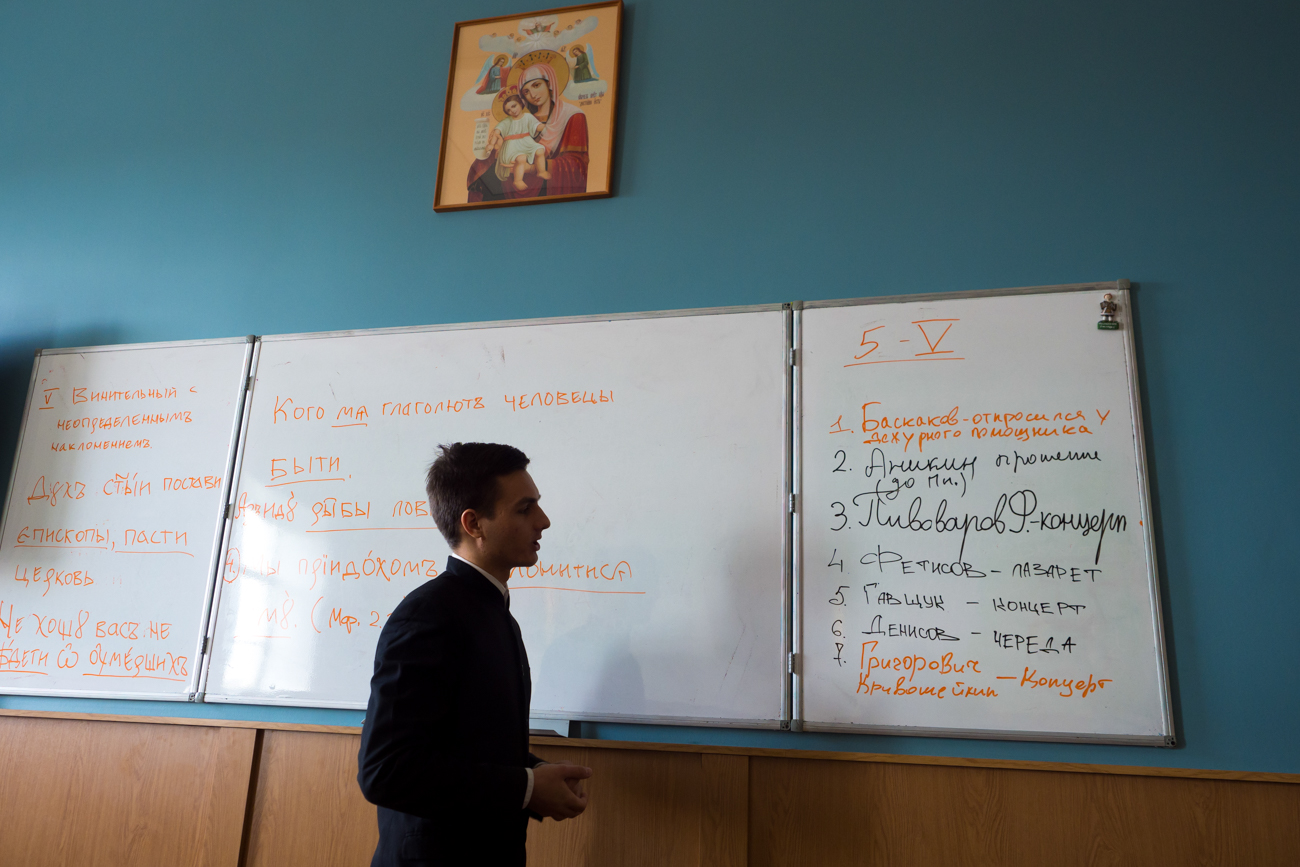 V Винительный с
неопределеннымъ
наклонением.
Дꙋхъ ст҃ый постави
Єпископы, пасти
церковь
Не хощꙋ васъ не
ѡ оумершихъ
Кого мѧ глаголютъ человецы
быти.
дабы лов
приидо́хомъ
мꙋ. (Мф. 2.
5 - V
1. Баскаков - отпросился у
дежурного помощника
2. Аникин прошение
(до пн.)
3. Пивоваров Ф.-концерт
4. Фетисов - лазарет
5. Гавщук - концерт
6. Денисов - череда
7. Григорович
Кривошейкин - Концерт